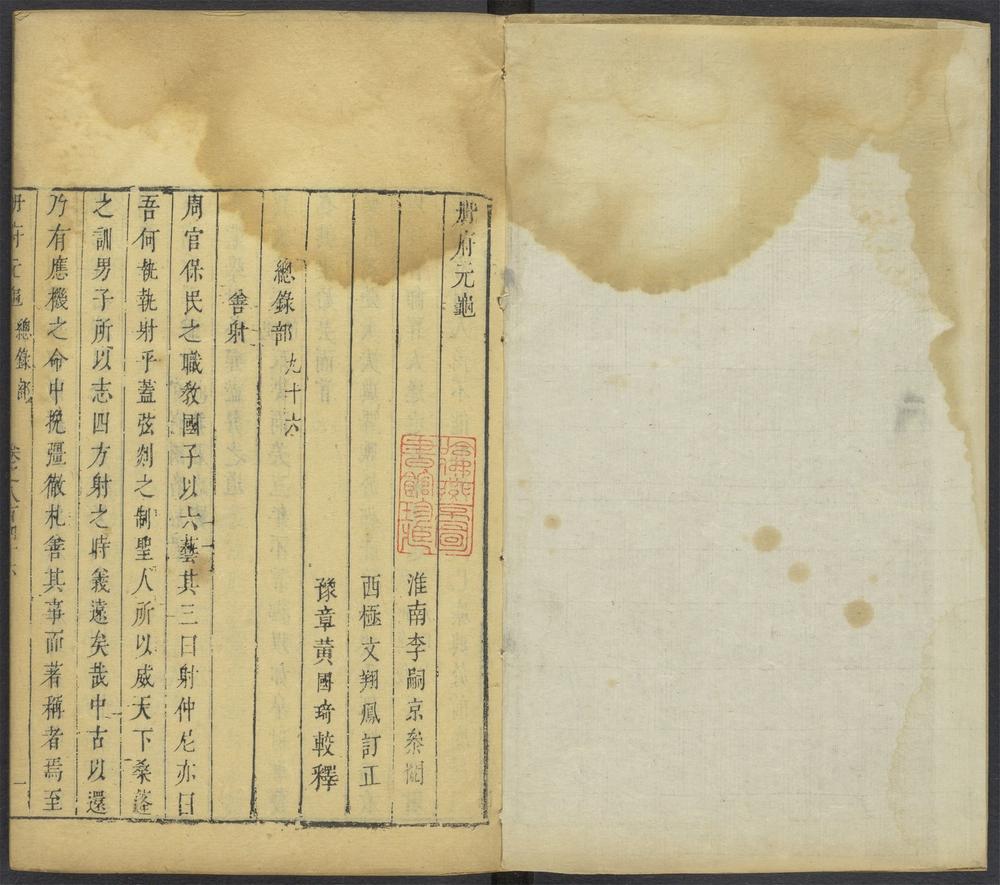 冊府元龜
淮南李嗣京叅閱
西極文翔鳳訂正
豫章黃國琦較釋
總錄部 九十六
善射
周官保民之職敎國子以六藝其三曰射仲尼亦曰
吾何執執射乎蓋弦剡之制聖人所以威天下桑蓬
之訓男子所以志四方射之時義遠矣哉中古以還
乃有應機之命中挽彊徹札善其事而著稱者焉至
冊府元龜 總錄部 一